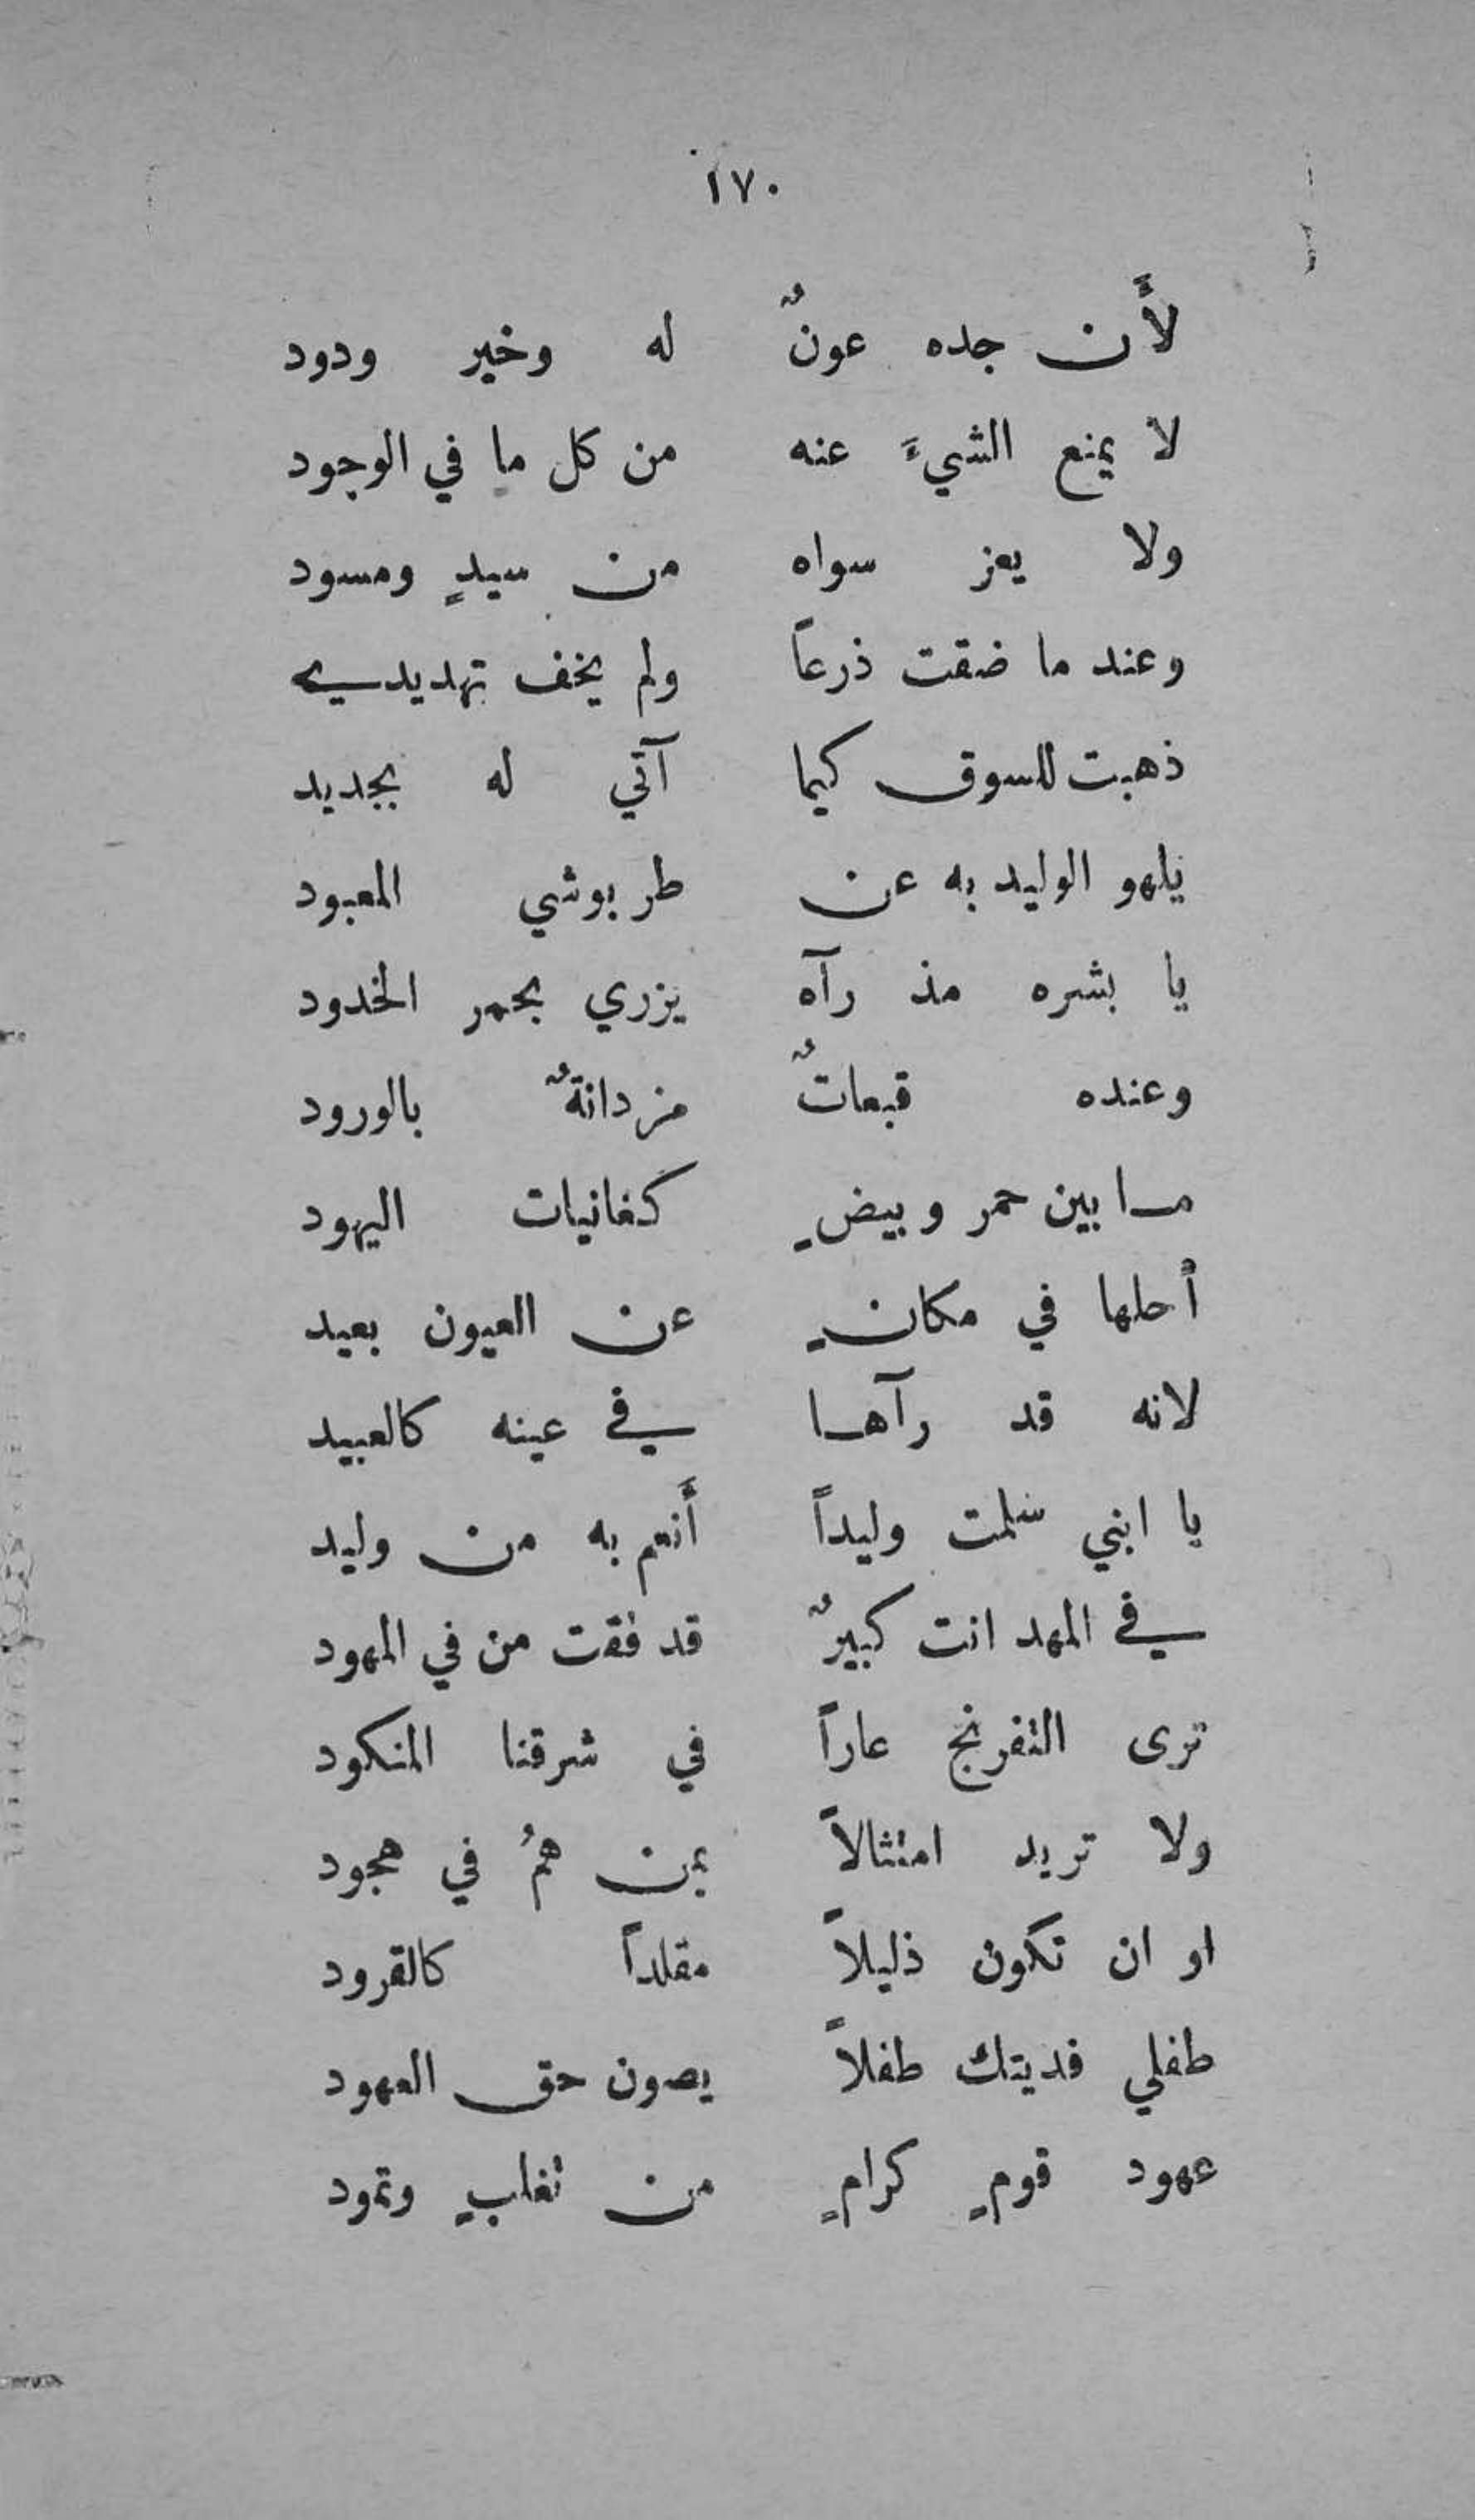 ١٧٠
لأَن جده عونٌ له وخير ودود
لا يمنع الشيءَ عنه من كل ما في الوجود
ولا يعز سواه من سيدٍ ومسود
وعند ما ضقت ذرعاً ولم يخف تهديدي
ذهبت للسوق كيما آتي له بجديد
يلهو الوليد به عن طربوشي المعبود
يا بشره مذ رآه يزري بحمر الخدود
وعنده قبعاتٌ مزدانةٌ بالورود
ما بين حمر وبيضٍ كغانيات اليهود
أحلها في مكانٍ عن العيون بعيد
لانه قد رآها في عينه كالعبيد
يا ابني سلمت وليداً أَنعم به من وليد
في المهد انت كبيرٌ قد فقت من في المهود
ترى التفرنج عاراً في شرقنا المنكود
ولا تريد امتثالاً بمن همُ في هجود
او ان تكون ذليلاً مقلداً كالقرود
طفلي فديتك طفلاً يصون حق العهود
عهود قومٍ كرامٍ من تغلبٍ وثمود